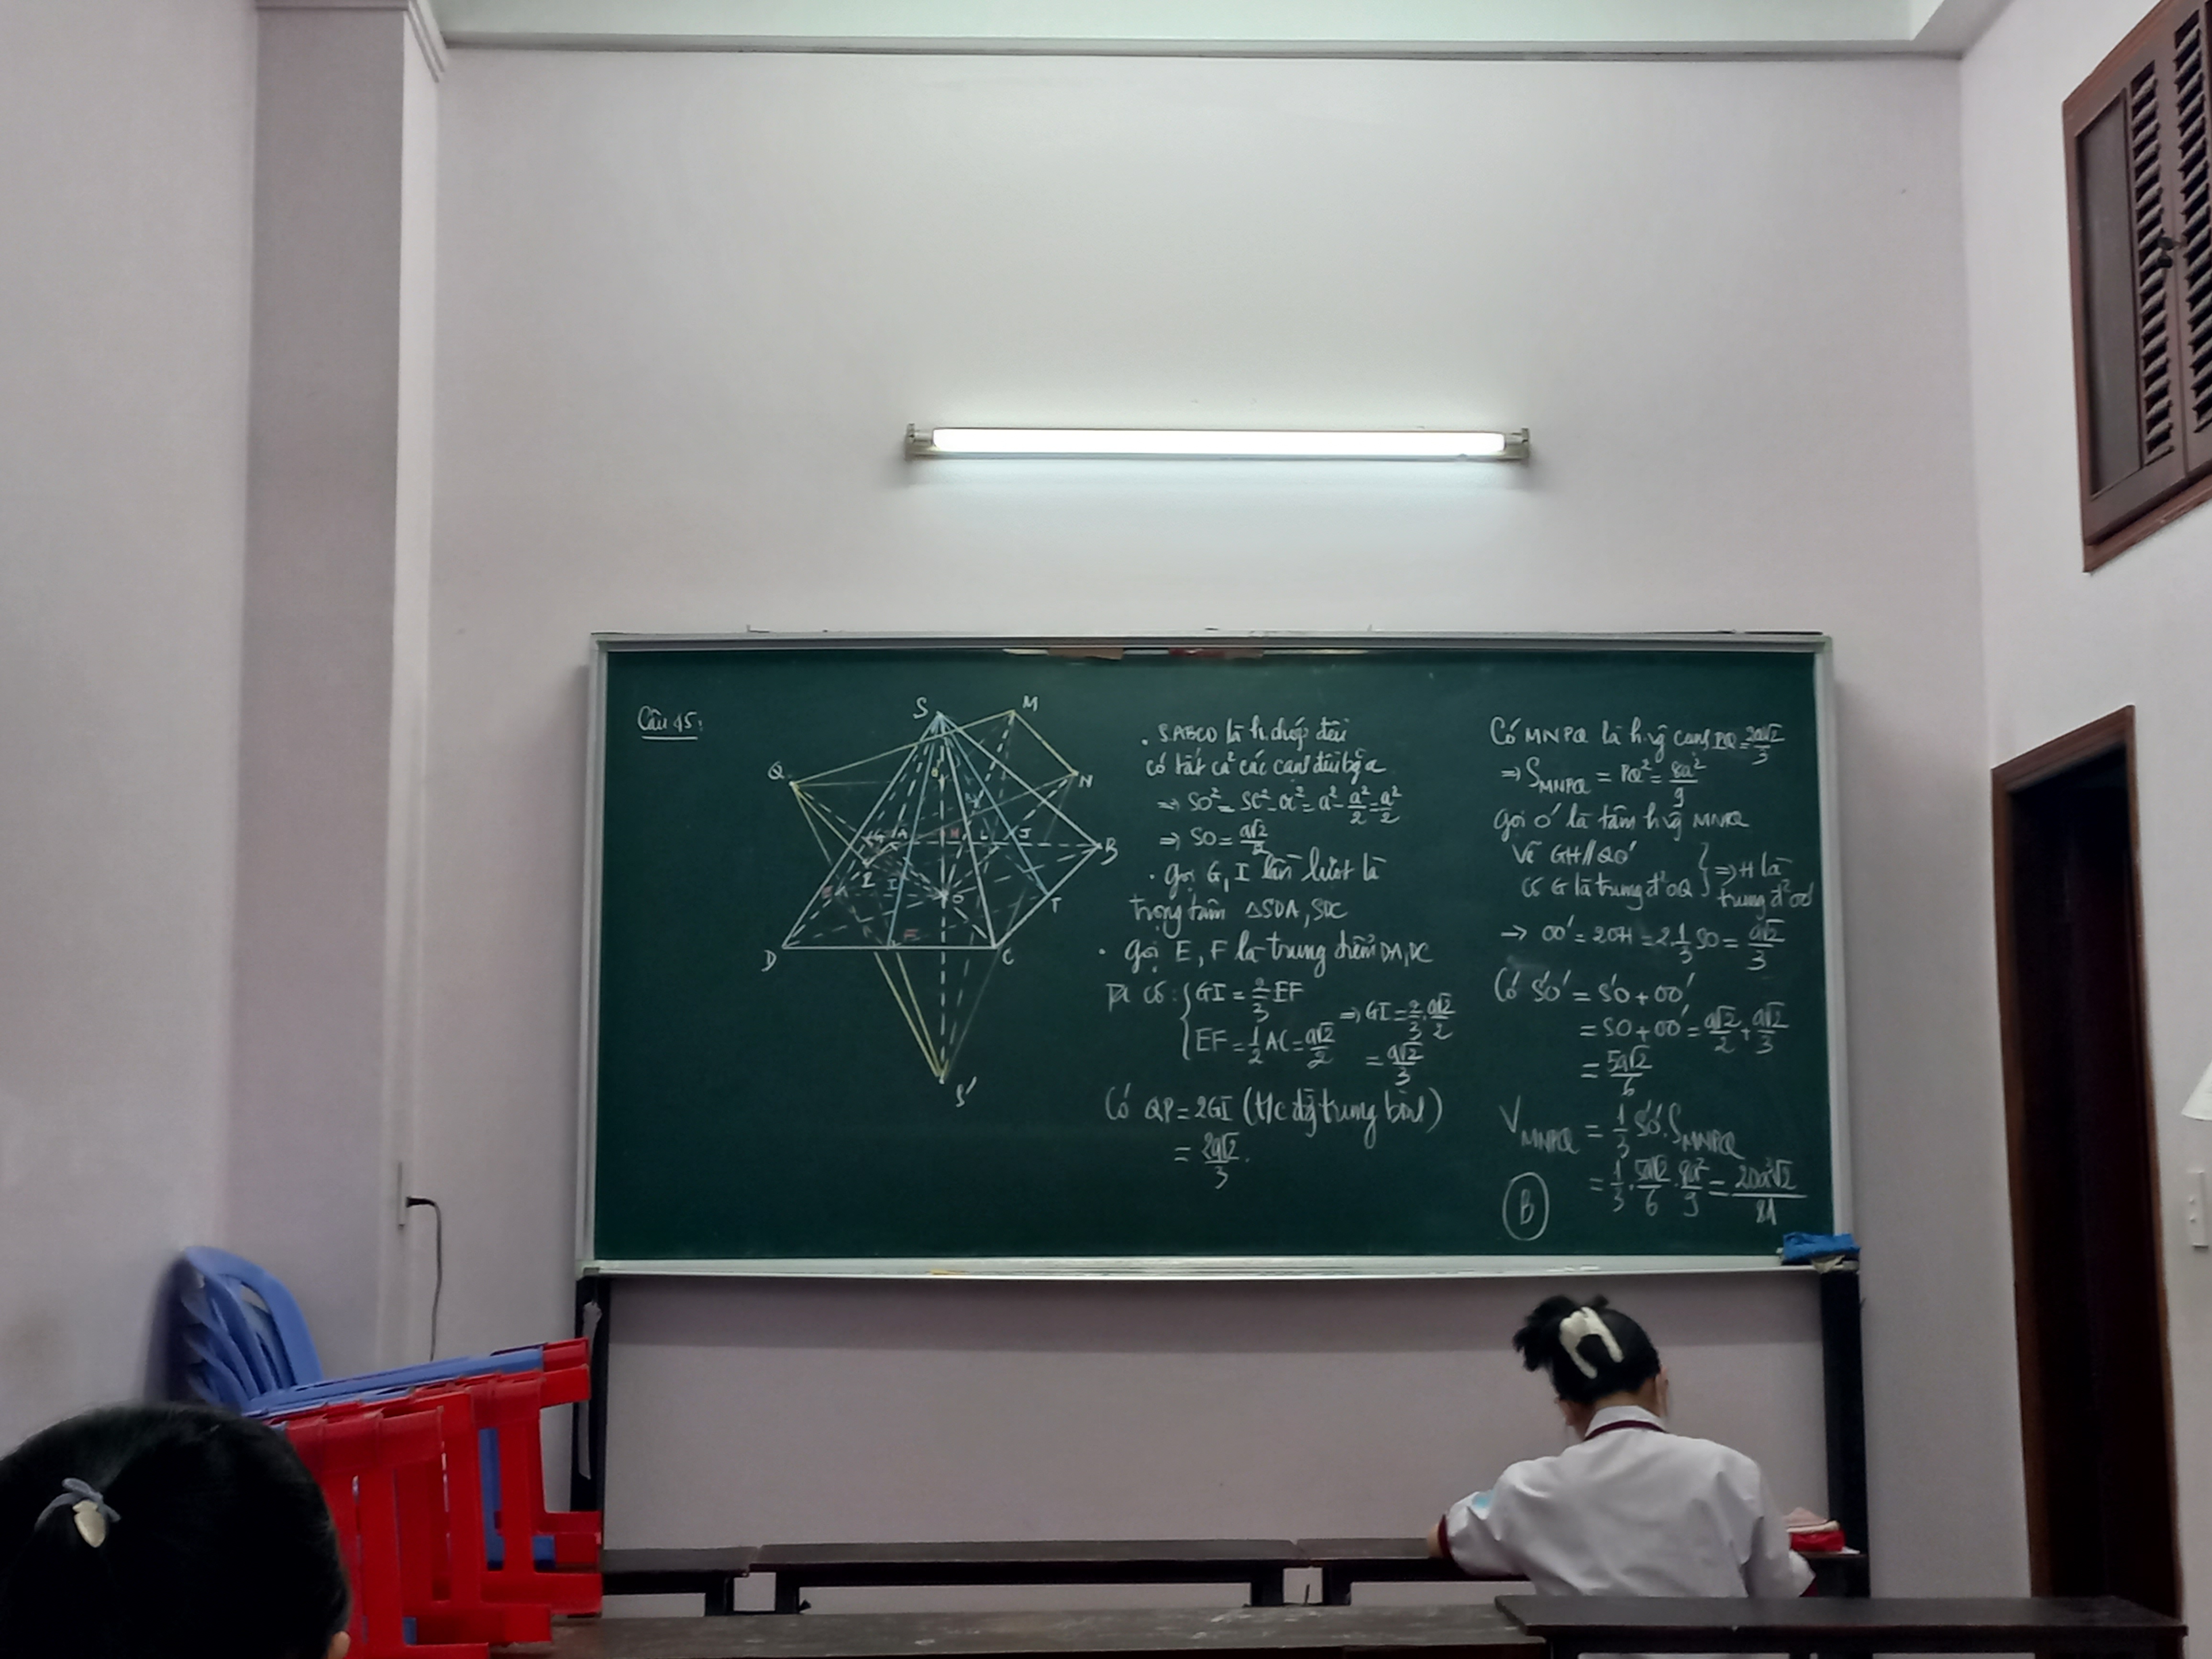 Câu 45:
S
M
Q
N
A
H
L
J
B
I
O
T
E
F
D
C
S'
. S.ABCD là h.chóp đều
có tất cả các cạnh đều bg a
=> SO² = SC² - OC² = a² - a²/2 = a²/2
=> SO = a√2/2
. gọi G, I lần lượt là
trọng tâm ΔSDA, SDC
. gọi E, F là trung điểm DA, DC
Ta có: { GI = 2/3 EF
EF = 1/2 AC = a√2/2
=> GI = 2/3 . a√2/2
= a√2/3
Có QP = 2GI (t/c đg trung bình)
= 2a√2/3.
Có MNPQ là h.vg cạnh PQ = 2a√2/3
=> S_MNPQ = PQ² = 8a²/9
gọi O' là tâm hvg MNPQ
Vẽ GH // QO'
có G là trung đ² OQ } => H là
trung đ² OO'
-> OO' = 2OH = 2.1/3 SO = a√2/3
Có S'O' = S'O + OO'
= SO + OO' = a√2/2 + a√2/3
= 5a√2/6
V_MNPQ = 1/3 S'O'. S_MNPQ
= 1/3 . 5a√2/6 . 8a²/9 = 20a³√2/81
B